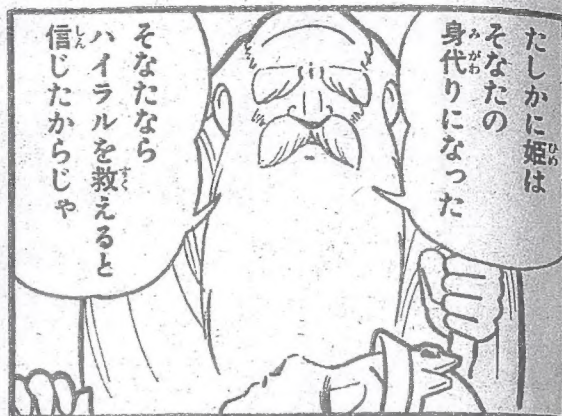 たしかに姫は
そなたの
身代りになった
そなたなら
ハイラルを救えると
信じたからじゃ